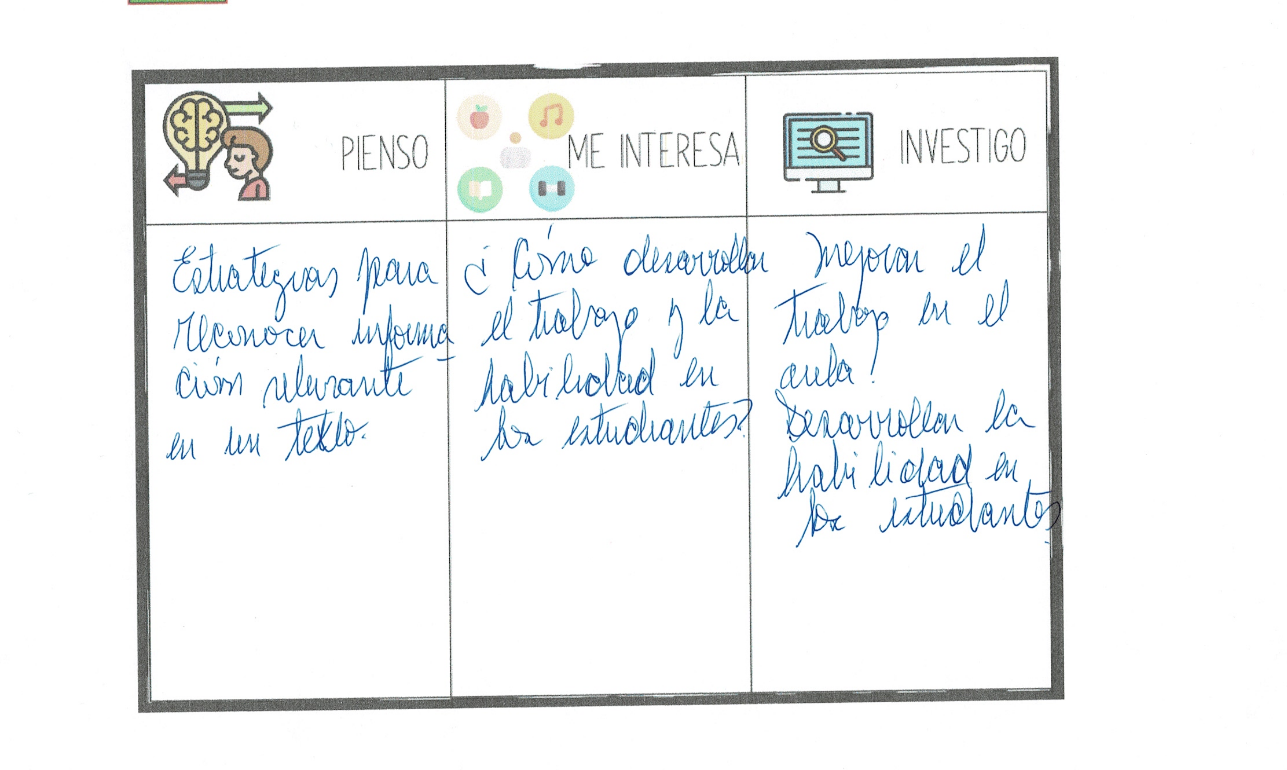 PIENSO
ME INTERESA
INVESTIGO
Estrategias para
reconocer informa
ción relevante
en un texto.
¿Cómo desarrollar
el trabajo y la
habilidad en
los estudiantes?
Mejorar el
trabajo en el
aula!
Desarrollar la
habilidad en
los estudiantes.